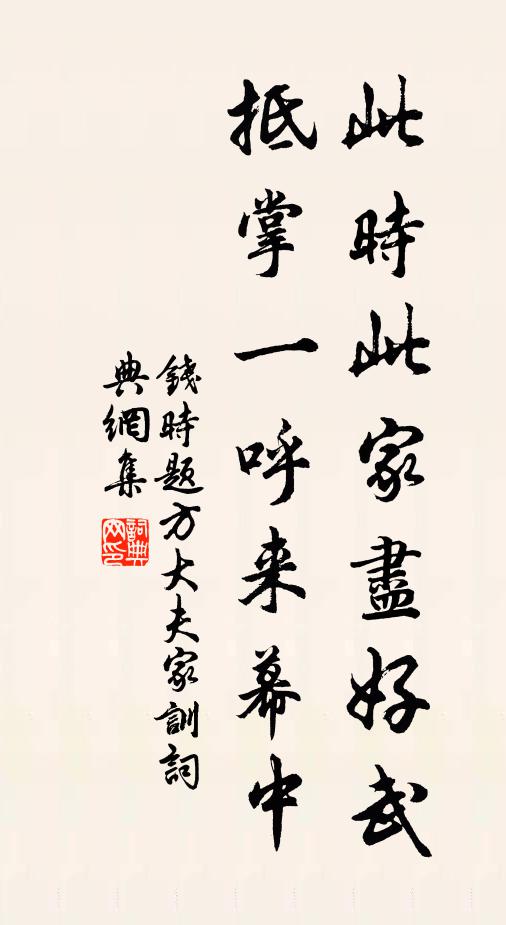 此時此家盡好武
抵掌一呼来幕中
錢時題方大夫家訓詞
典網集
詞典網印